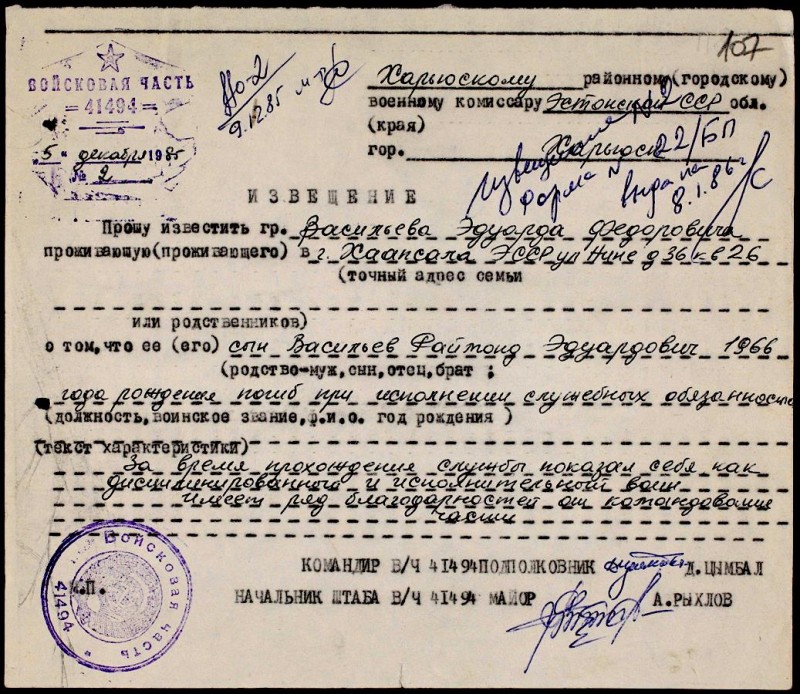 107
ВОЙСКОВАЯ ЧАСТЬ
41494
"5" декабря 1985
№ 2
9.12.85
Харьюскому районному (городскому)
военному комиссару Эстонской ССР обл.
(края)
гор. Харьюск
Извещение №
форма № 22/БП
8.1.86 г
ИЗВЕЩЕНИЕ
Прошу известить гр. Васильева Эдуарда Федоровича
проживающую (проживающего) в г. Хаапсала ЭССР ул Нине д 36 кв 26
(точный адрес семьи
или родственников)
о том, что ее (его) сын Васильев Раймонд Эдуардович 1966
(родство-муж, сын, отец, брат ;
года рождения погиб при исполнении служебных обязанностей
(должность, воинское звание, ф.и.о. год рождения )
(текст характеристики)
За время прохождения службы показал себя как
дисциплинированный и исполнительный воин
имеет ряд благодарностей от командования
части
КОМАНДИР В/Ч 41494 ПОДПОЛКОВНИК Д. ЦЫМБАЛ
М.П.
НАЧАЛЬНИК ШТАБА В/Ч 41494 МАЙОР А. РЫХЛОВ
Войсковая часть * 41494